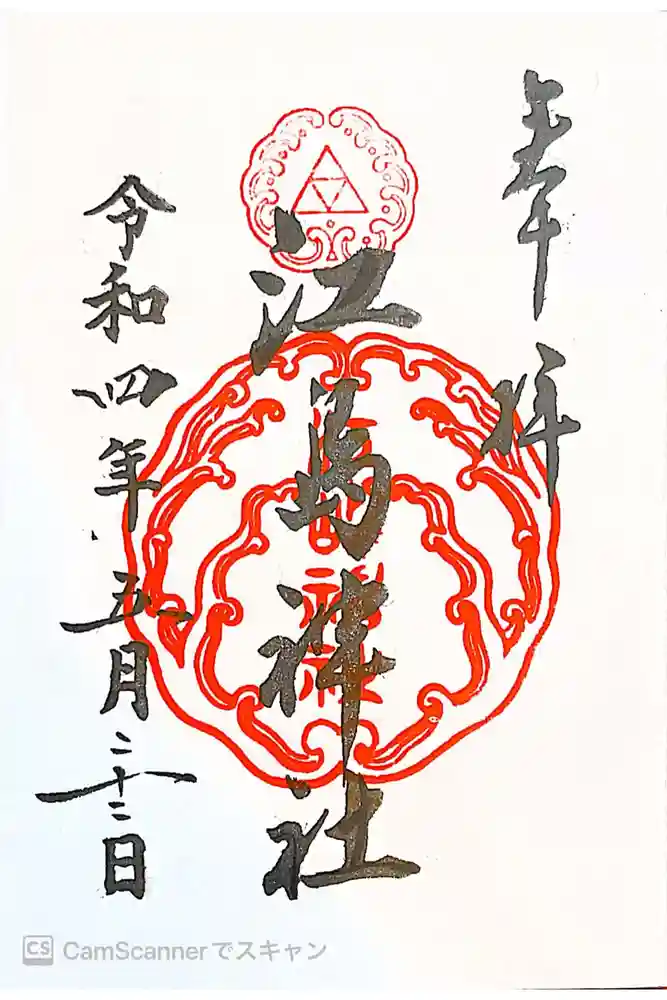 奉拝
江島神社
令和四年五月二十二日
CS CamScannerでスキャン